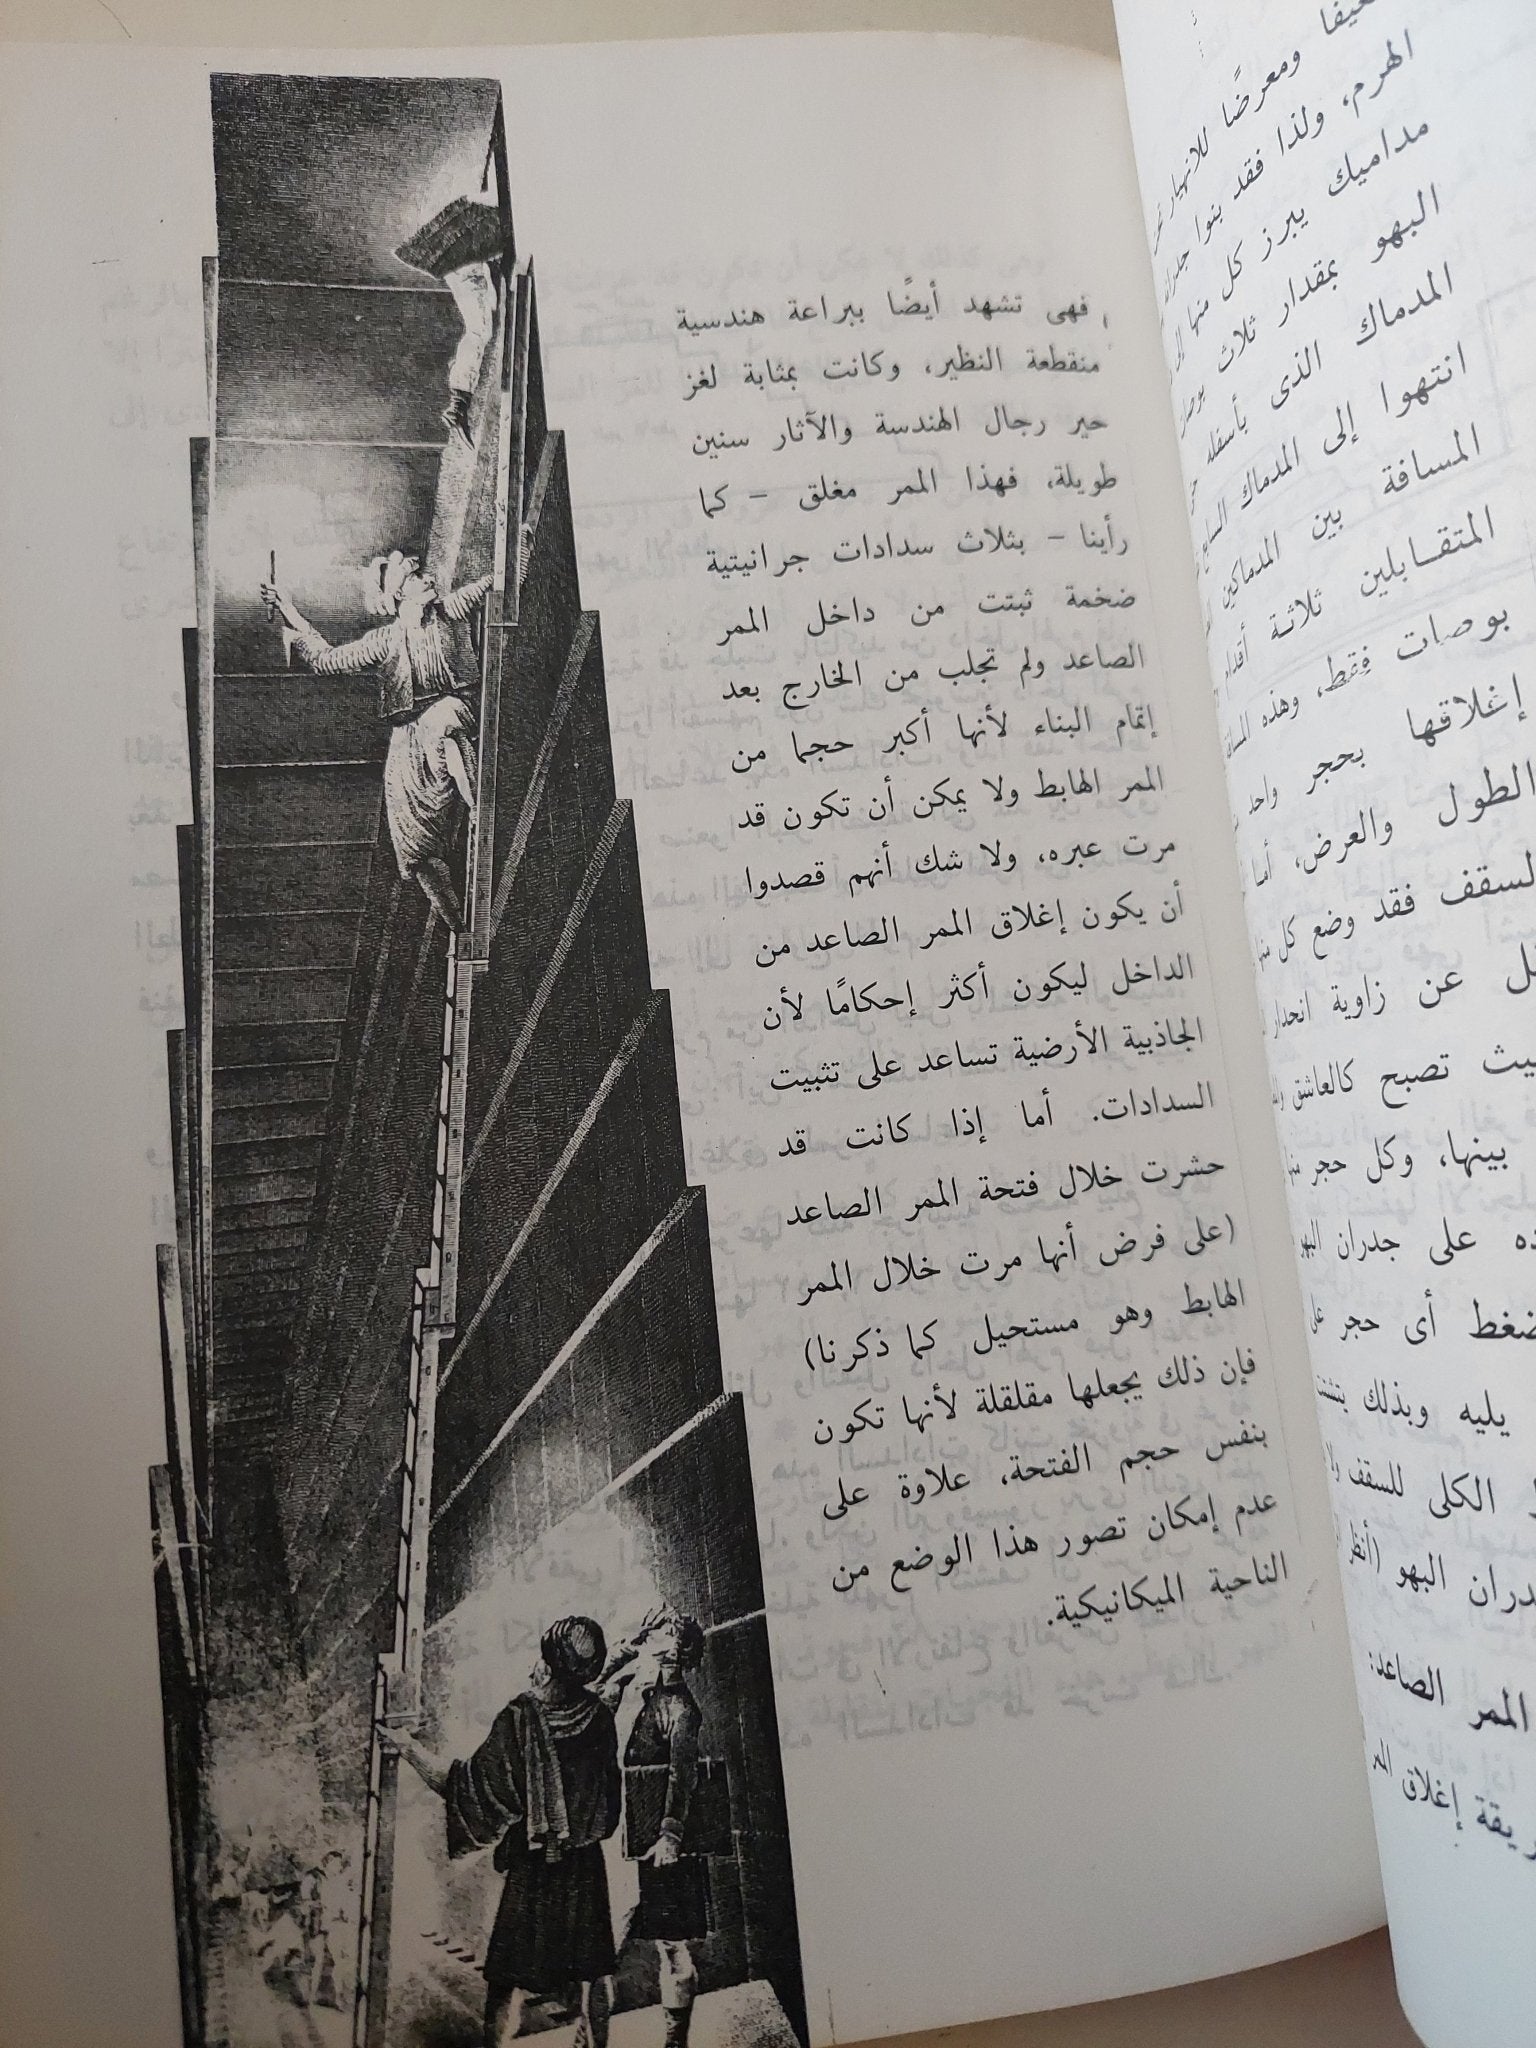 فهى تشهد أيضًا ببراعة هندسية
منقطعة النظير، وكانت بمثابة لغز
حير رجال الهندسة والآثار سنين
طويلة، فهذا الممر مغلق – كما
رأينا – بثلاث سدادات جرانيتية
ضخمة ثبتت من داخل الممر
الصاعد ولم تجلب من الخارج بعد
إتمام البناء لأنها أكبر حجما من
الممر الهابط ولا يمكن أن تكون قد
مرت عبره، ولا شك أنهم قصدوا
أن يكون إغلاق الممر الصاعد من
الداخل ليكون أكثر إحكامًا لأن
الجاذبية الأرضية تساعد على تثبيت
السدادات. أما إذا كانت قد
حشرت خلال فتحة الممر الصاعد
(على فرض أنها مرت خلال الممر
الهابط وهو مستحيل كما ذكرنا)
فإن ذلك يجعلها مقلقلة لأنها تكون
بنفس حجم الفتحة، علاوة على
عدم إمكان تصور هذا الوضع من
الناحية الميكانيكية.
ومعرضًا للانهيار
الهرم، ولذا فقد بنوا
مداميك يبرز كل منها
البهو بمقدار ثلاث
المدماك الذى بأسفله
انتهوا إلى المدماك السابع
المسافة بين المدماكين
المتقابلين ثلاثة أقدام
بوصات فقط، وهذه
إغلاقها بحجر واحد
الطول والعرض، أما
السقف فقد وضع كل
عن زاوية انحدار
تصبح كالعاشق
بينها، وكل حجر
على جدران البهو
أى حجر على
يليه وبذلك يتشتت
الكلى للسقف ولا
البهو (أنظر
الممر الصاعد:
إغلاق